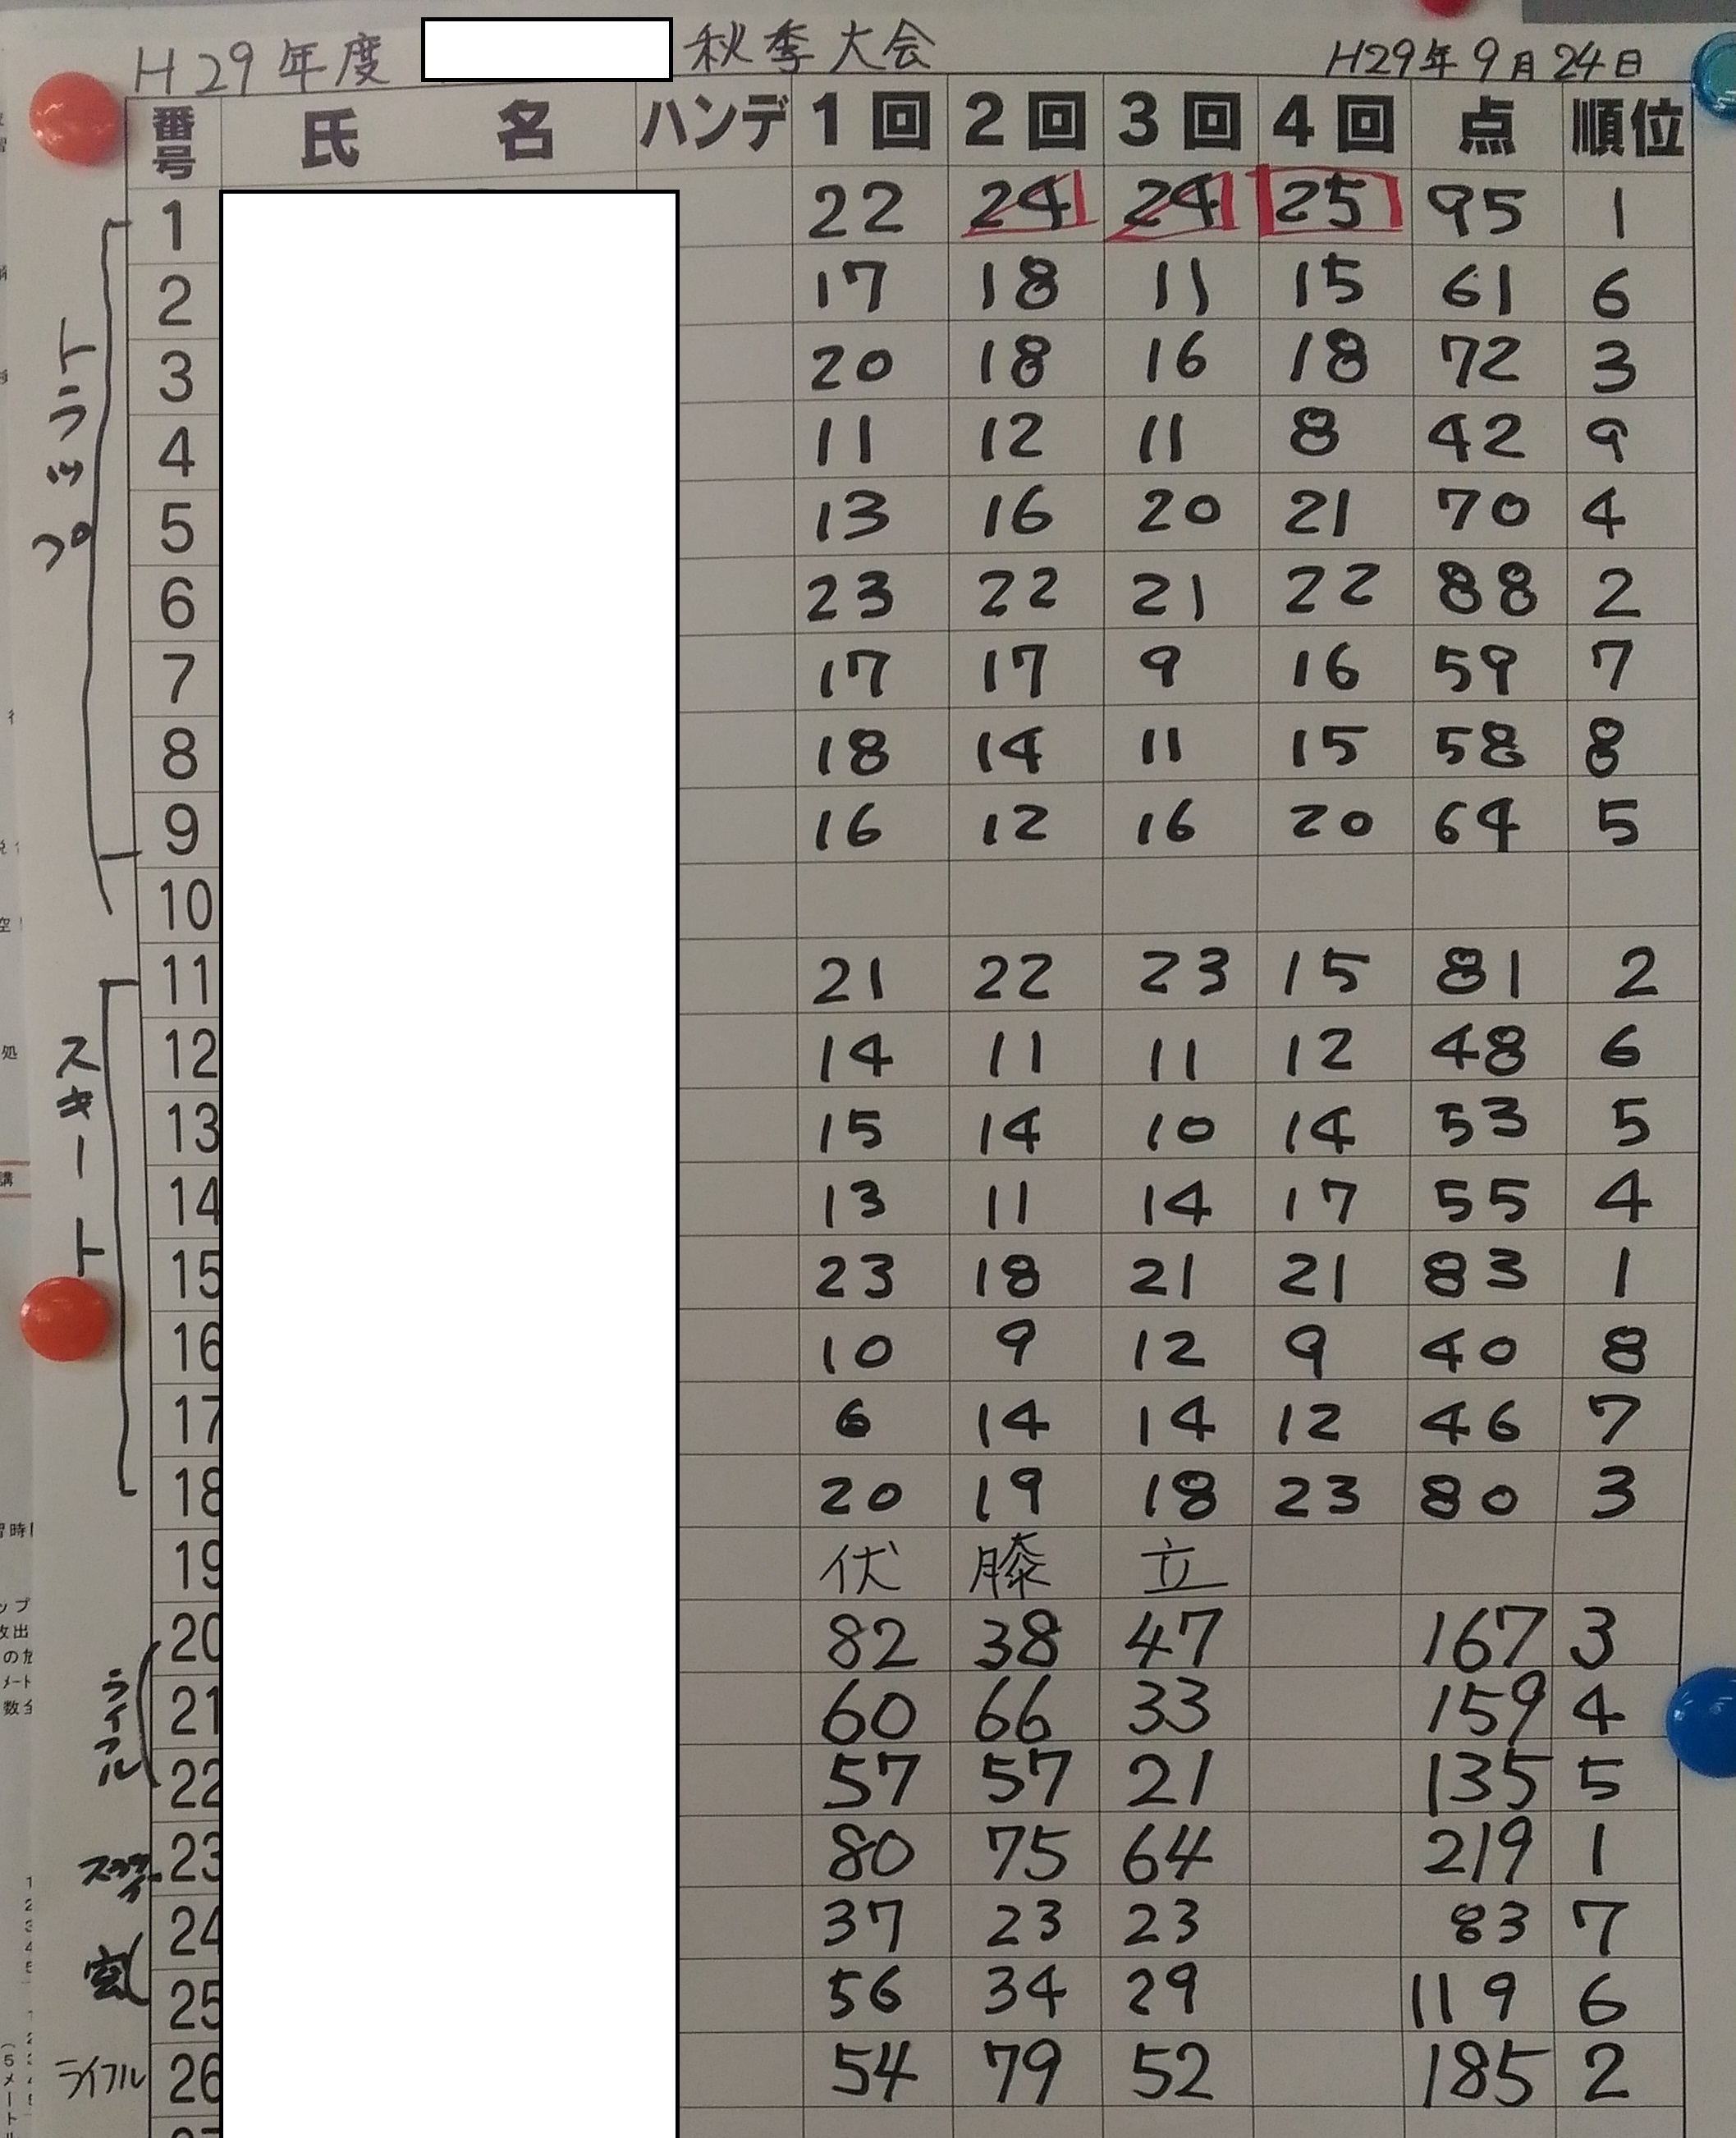 H29年度 秋季大会 H29年9月24日
番号 氏名 ハンデ 1回 2回 3回 4回 点 順位
トラップ
1 22 24 24 25 95 1
2 17 18 11 15 61 6
3 20 18 16 18 72 3
4 11 12 11 8 42 9
5 13 16 20 21 70 4
6 23 22 21 22 88 2
7 17 17 9 16 59 7
8 18 14 11 15 58 8
9 16 12 16 20 64 5
10
スキート
11 21 22 23 15 81 2
12 14 11 11 12 48 6
13 15 14 10 14 53 5
14 13 11 14 17 55 4
15 23 18 21 21 83 1
16 10 9 12 9 40 8
17 6 14 14 12 46 7
18 20 19 18 23 80 3
19 伏 膝 立
ライフル
20 82 38 47 167 3
21 60 66 33 159 4
22 57 57 21 135 5
23 80 75 64 219 1
24 37 23 23 83 7
25 56 34 29 119 6
ライフル 26 54 79 52 185 2